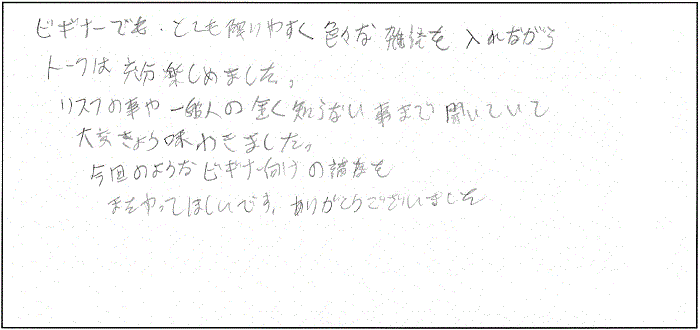 ビギナーでも、とても解りやすく色々な雑経を入れながら
トークは充分楽しめました。
リスクの事や一般人の全く知らない事まで聞いていて
大変きょう味わきました。
今回のようなビギナー向けの講座を
またやってほしいです。ありがとうございました